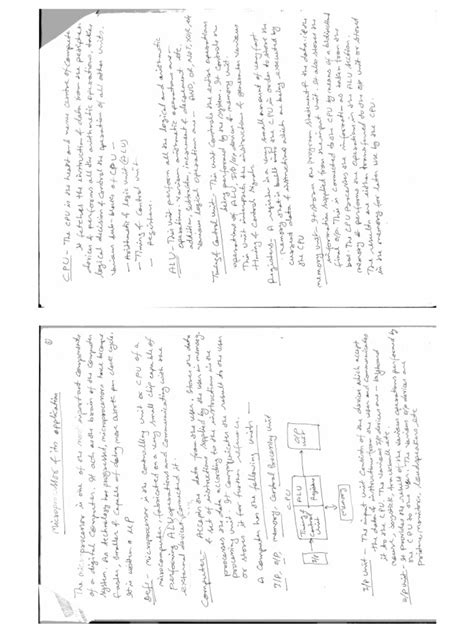 Microprocessor & its application
The microprocessor is one of the most important components
of a digital Computer. It acts as the brain of the Computer
System. As technology has progressed, microprocessors have become
faster, smaller & capable of doing more work per clock cycle.
It is written as μP
Def:- Microprocessor is the controlling unit or CPU of a
microcomputer, fabricated on a very small chip capable of
performing ALU operations and communicating with the
external devices connected to it
Computer:- Accepts the data from the user, stores the data
& set of instructions supplied by the user in memory
processes the data according to the instruction in the
processing unit. It communicates the result to the user
or stores it for further use in
A Computer has the following units -
I/P, O/P, memory Central Processing Unit
CPU
I/P
Timing &
Control
Unit
ALU
Registers
O/P
memory
I/P unit - The input unit consists of the device which accept
the data & instruction from the user and communicates
it to the CPU. The various I/P devices are - keyboard
O/P unit - It provides the result of the various operations performed by
the CPU to the user. The various O/P devices are
Printer, monitor, Loudspeakers, etc
CPU - The CPU is the heart and nerve centre of Computer
It fetches the instruction & data from the peripheral
devices & performs all the arithmetic operations, takes
logical decision & control the operation of all other units.
Various sub blocks of CPU -
- Arithmetic Logic unit (ALU)
- Timing & Control unit.
- Registers.
ALU - This unit perform all the logical and arithmetic
operations. Various arithmetic operations are -
addition, subtraction, increment & decrement etc.
Various logical operations are - AND, OR, NOT, XOR, etc
Timing & Control Unit - This unit controls the entire operations
being performed by the system. It controls the
operations of ALU, I/P, O/P devices & memory unit.
This unit interprets the instructions & generates various
timing & Control signals
Registers - A register is a very small amount of very fast
memory that is built into the CPU in order to store the
current data & instructions which are being executed by
the CPU
memory unit - It stores the program statement & the data i.e. the
information supplied from the input unit. It also stores the
final O/P. This is connected to the CPU by means of a bidirectional
bus. The CPU processes the information as taken from the
memory & performs the operations in the ALU section
The results are either transferred to the O/P unit or stored
in the memory for later use by the CPU.